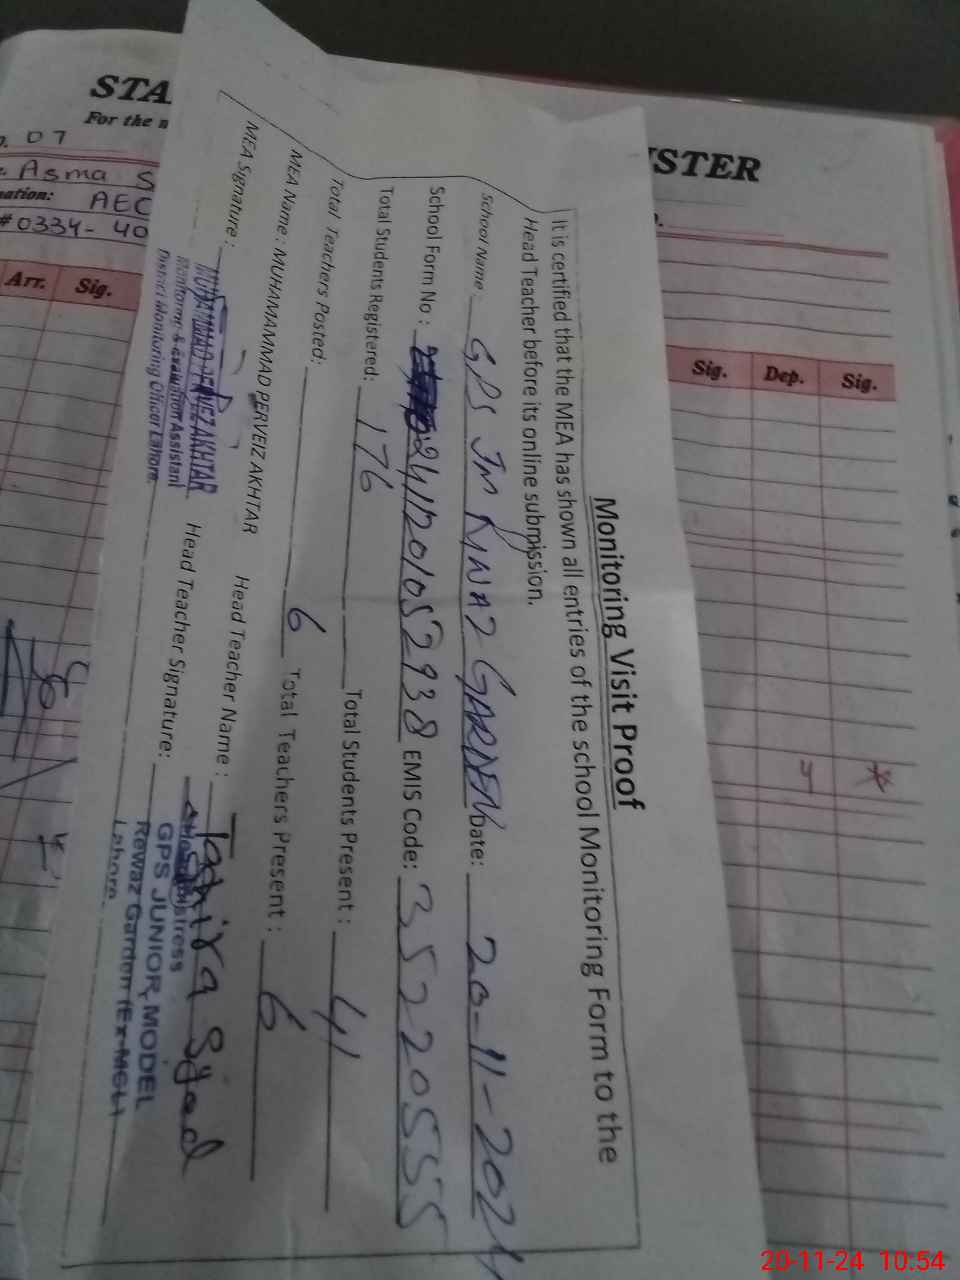 STA
ISTER
For the n
07
Asma S
nation: AEC
#0334-40
Arr. Sig.
Sig. Dep. Sig.
Monitoring Visit Proof
It is certified that the MEA has shown all entries of the school Monitoring Form to the
Head Teacher before its online submission.
School Name: GPS JM RIWAZ GARDEN Date: 20-11-2024
School Form No : 2411201052938 EMIS Code: 35220555
Total Students Registered: 176 Total Students Present : 41
Total Teachers Posted: 6 Total Teachers Present : 6
MEA Name : MUHAMAMMAD PERVEIZ AKHTAR Head Teacher Name : Tahira Syed
MEA Signature : Head Teacher Signature:
MUHAMMAD PERVEZ AKHTAR
Monitoring & evaluation Assistant
District Monitoring Officer Lahore
Headmistress
GPS JUNIOR MODEL
Rewaz Garden (Ex-MCL)
Lahore
20-11-24 10:54